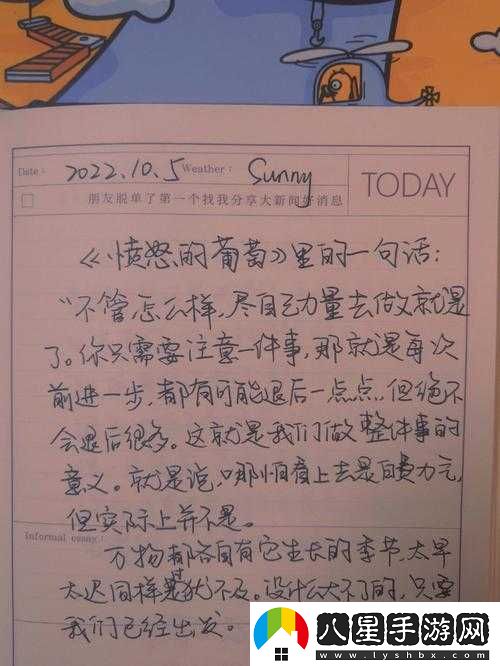 Date: 2022.10.5 Weather: Sunny
TODAY
朋友脱单了第一个找我分享大新闻好消息
《愤怒的葡萄》里的一句话：
“不管怎么样，尽自己力量去做就是
了。你只需要注意一件事，那就是每次
前进一步，都有可能退后一点点，但绝不
会退后很多。这就是我们做整件事的
意义。就是说，哪怕看上去是白费力气，
但实际上并不是。
Informal essay:
万物都各自有它生长的季节，太早
太迟同样是过犹不及。没什么大不了的，只要
我们已经出发。
八星手游网
www.lyshbx.com